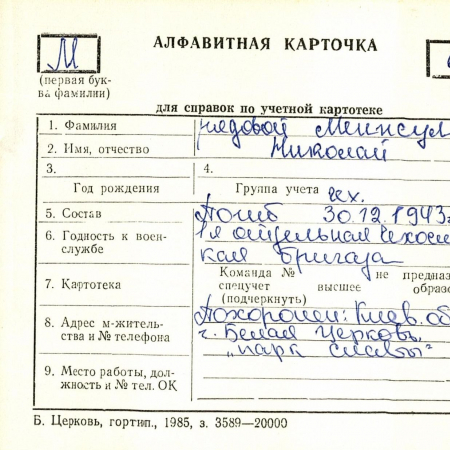 М
АЛФАВИТНАЯ КАРТОЧКА
(первая бук-
ва фамилии)
для справок по учетной картотеке
1. Фамилия рядовой Минсул
2. Имя, отчество Николай
3. 4.
Год рождения Группа учета чех.
5. Состав Погиб 30.12.1943
6. Годность к воен-
службе
1я отдельная Чехос
кая бригада
7. Картотека Команда № не предназ
спецучет высшее образо
(подчеркнуть)
8. Адрес м-житель-
ства и № телефона
Похоронен: Киев. об
г. Белая Церковь,
„парк славы"
9. Место работы, дол-
жность и № тел. ОК
Б. Церковь, гортип., 1985, з. 3589—20000